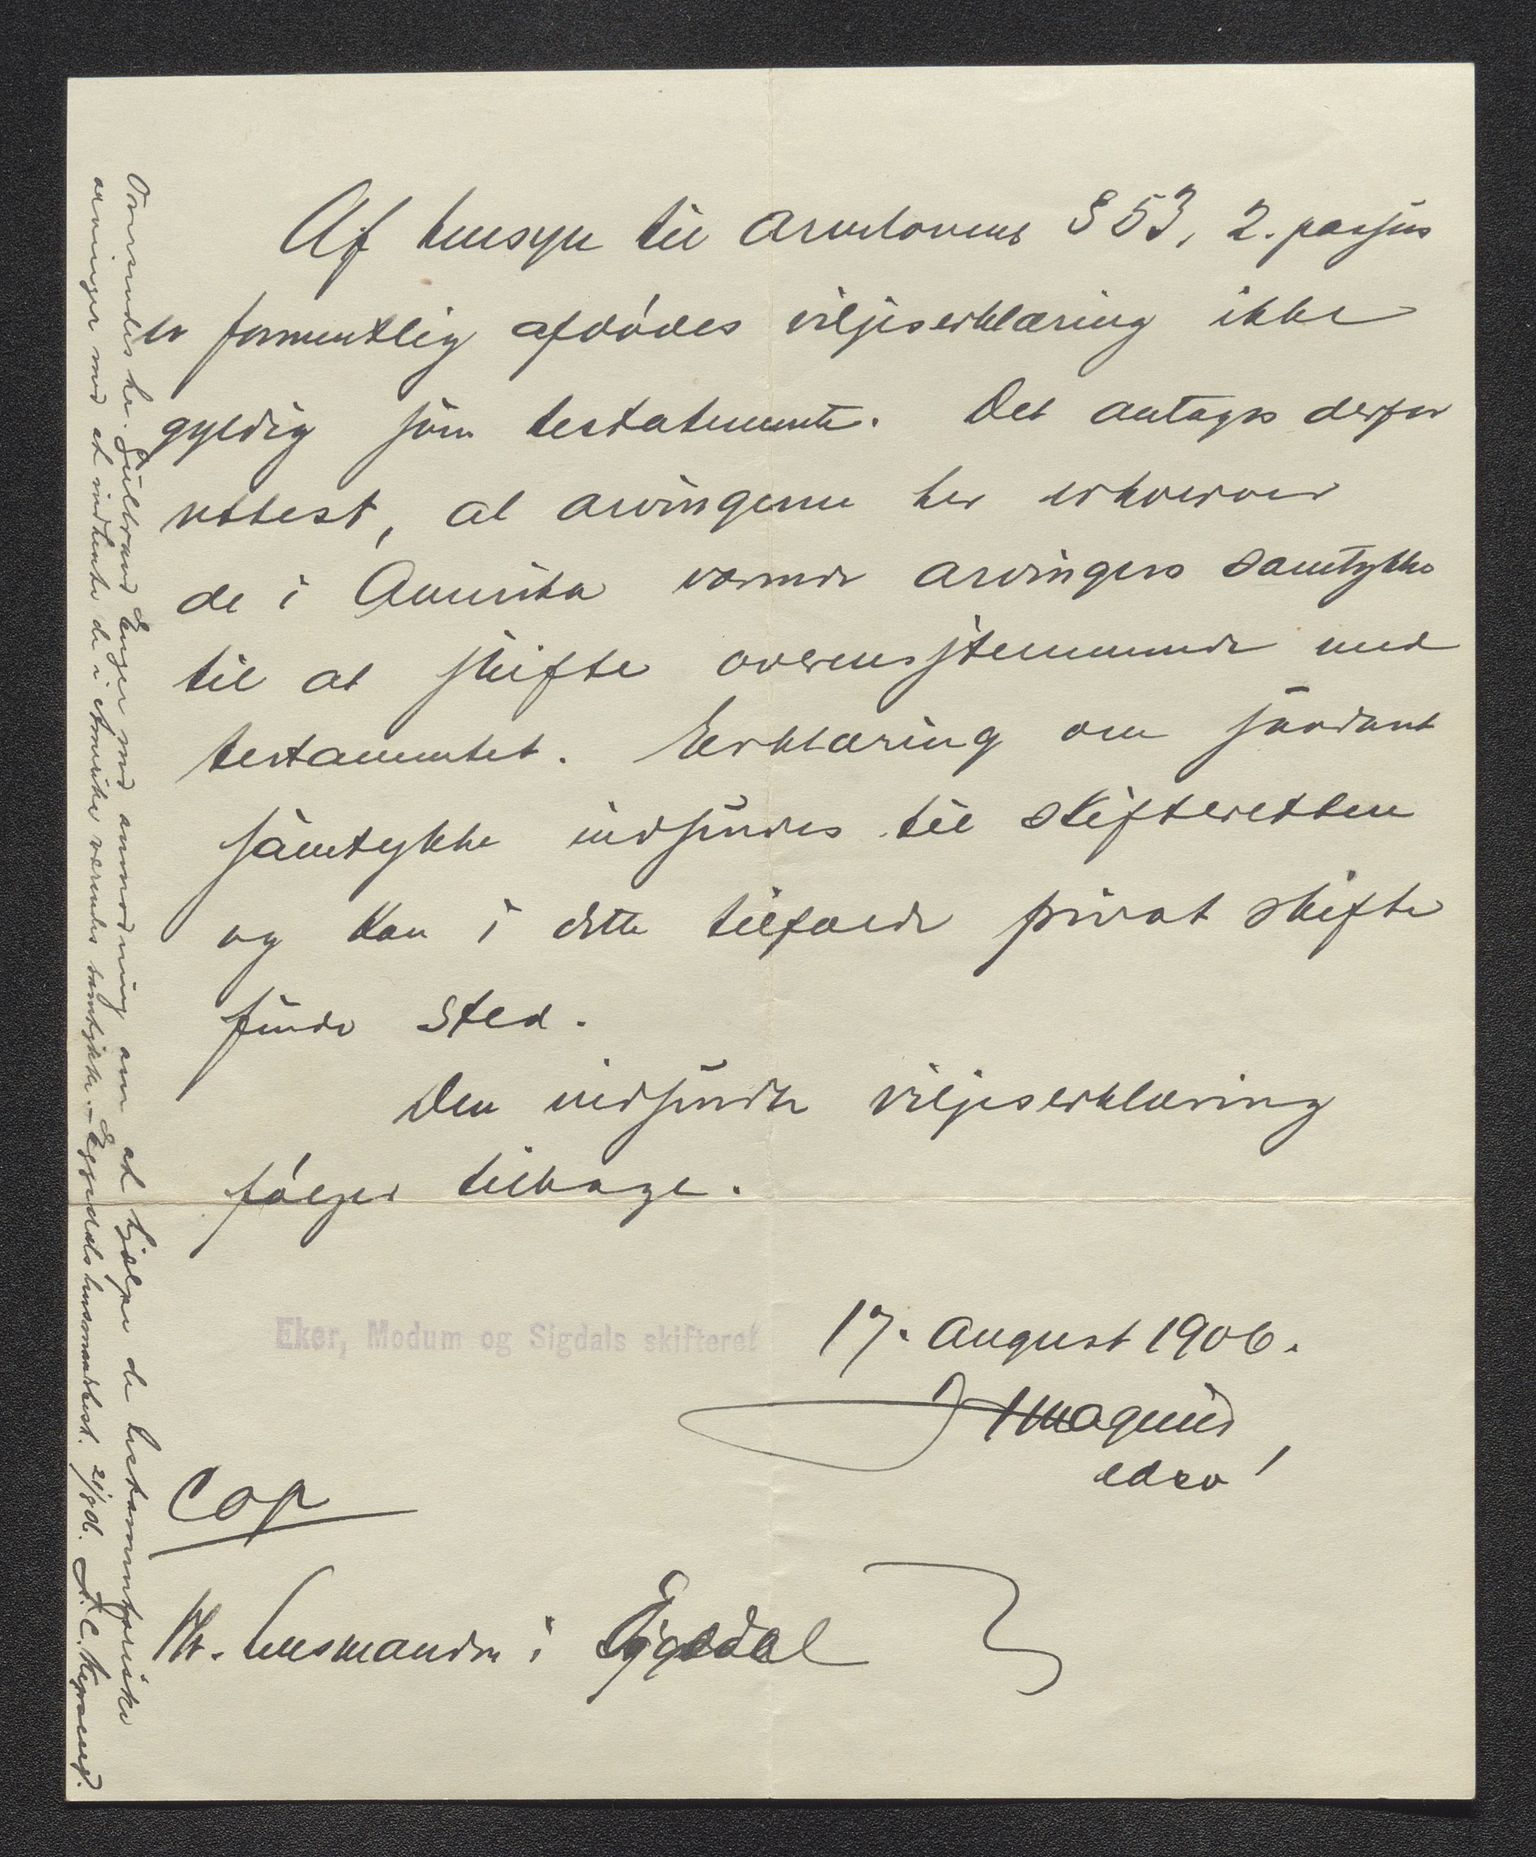 Af hensyn til arvelovens § 53, 2. passus
er formentlig afdødes viljeserklæring ikke
gyldig som testamente. Det antages derfor
rettest, at arvingerne her erhverver
de i Amerika værende arvingers samtykke
til at skifte overensstemmende med
testamentet. Erklæring om saadant
samtykke indsendes til skifteretten
og kan i dette tilfælde privat skifte
finde sted.
Den indsendte viljeserklæring
følger tilbage.
Eker, Modum og Sigdals skifteret 17. august 1906.
edsv.
Cop
Hr. lensmanden i Eggedal
Oversendes hr. Gulbrand Enger med anmodning om at hjælpe de testamentariske
arvinger med at indhente de i Amerika værendes samtykke. – Eggedals lensmandsbest. 21/8 06.